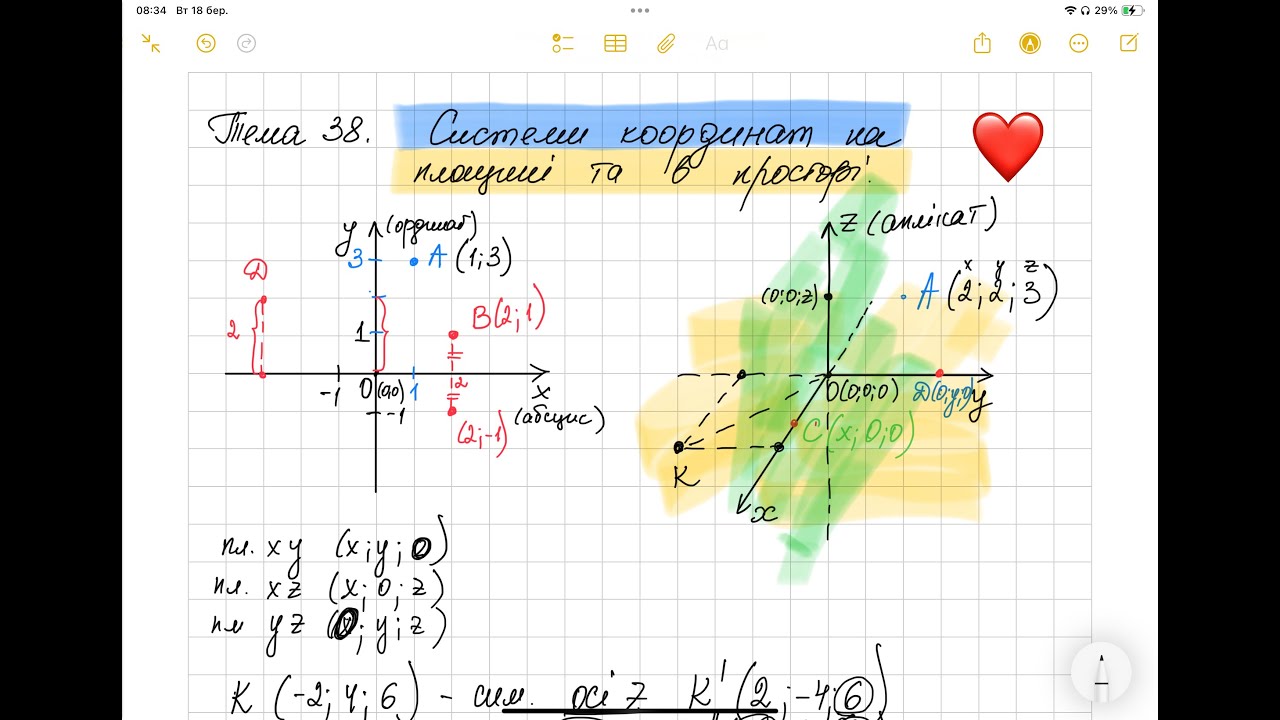 08:34 Вт 18 бер.
29%
Aa
Тема 38. Системи координат на
площині та в просторі.
y (ординат)
3 A (1;3)
D
2
1
B(2;1)
-1 0 (0;0) 1 2 x
-1
(абсцис)
(2;-1)
z (аплікат)
x y z
A (2; 2; 3)
(0;0;z)
O(0;0;0) D(0;y;0) y
C(x; 0; 0)
K
x
пл. xy (x; y; 0)
пл. xz (x; 0; z)
пл yz (0; y; z)
K (-2; 4; 6) - сим. осі z K' (2; -4; 6)